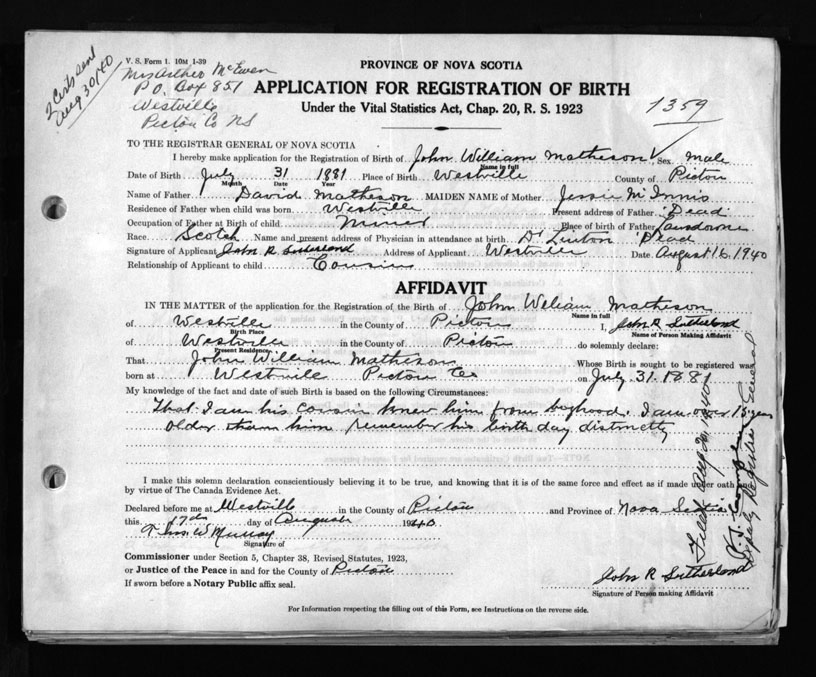 2 Certs sent
Aug 30/40
V. S. Form 1. 10M 1-39
Mrs Arther McEwen
P O. Box 851
Westville
Pictou Co NS
PROVINCE OF NOVA SCOTIA
APPLICATION FOR REGISTRATION OF BIRTH
Under the Vital Statistics Act, Chap. 20, R. S. 1923
1359
TO THE REGISTRAR GENERAL OF NOVA SCOTIA
I hereby make application for the Registration of Birth of John William Matheson Sex Male
Name in full
Date of Birth July 31 1881 Place of Birth Westville County of Pictou
Month Date Year
Name of Father David Matheson MAIDEN NAME of Mother Jessie McInnis
Residence of Father when child was born Westville Present address of Father Dead
Occupation of Father at Birth of child Miner Place of birth of Father Lansdowne
Race Scotch Name and present address of Physician in attendance at birth Dr Dead
Signature of Applicant John R Sutherland Address of Applicant Westville Date August 16 1940
Relationship of Applicant to child Cousin
AFFIDAVIT
IN THE MATTER of the application for the Registration of the Birth of John William Matheson
Name in full
of Westville in the County of Pictou I, John R Sutherland
Birth Place Name of Person Making Affidavit
of Westville in the County of Pictou do solemnly declare:
Present Residence
That John William Matheson Whose Birth is sought to be registered was
born at Westville Pictou Co on July 31. 1881
My knowledge of the fact and date of such Birth is based on the following Circumstances:
That I am his cousin knew him from boyhood. I am over 15 years
older than him remember his birth day distinctly
I make this solemn declaration conscientiously believing it to be true, and knowing that it is of the same force and effect as if made under oath and
by virtue of The Canada Evidence Act.
Declared before me at Westville in the County of Pictou and Province of Nova Scotia
this 17th day of August 1940
Thos. W Murray
Signature of
Commissioner under Section 5, Chapter 38, Revised Statutes, 1923,
or Justice of the Peace in and for the County of Pictou
If sworn before a Notary Public affix seal.
John R Sutherland
Signature of Person making Affidavit
For Information respecting the filling out of this Form, see Instructions on the reverse side.
Filed Aug 20, 1940
Deputy Registrar General